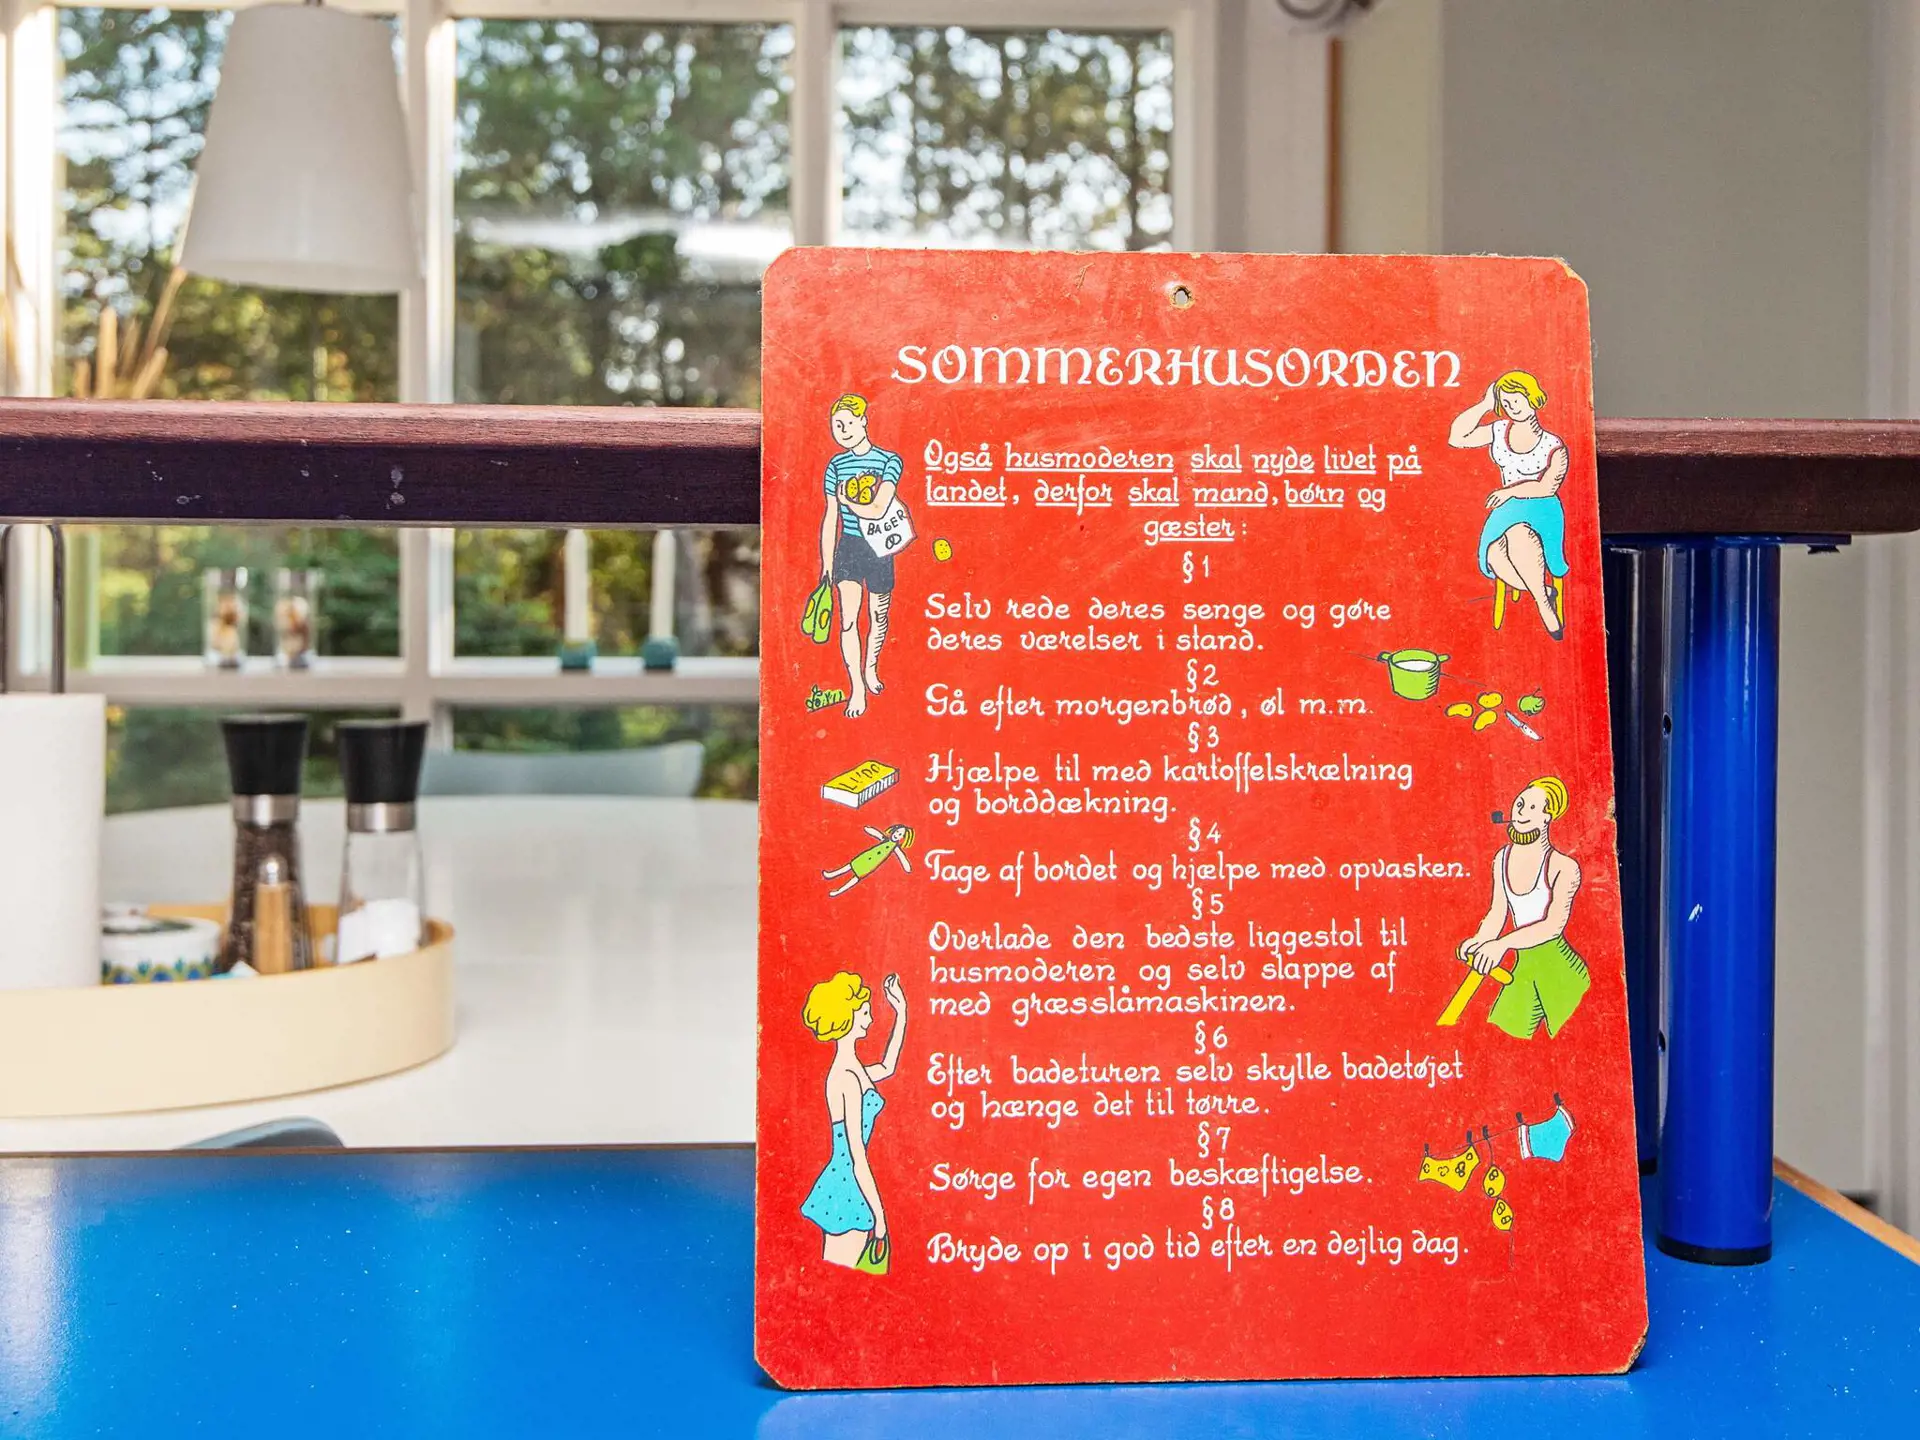 SOMMERHUSORDEN
Også husmoderen skal nyde livet på
landet, derfor skal mand, børn og
gæster:
§1
Selv rede deres senge og gøre
deres værelser i stand.
§2
Gå efter morgenbrød, øl m.m.
§3
Hjælpe til med kartoffelskrælning
og borddækning.
§4
Tage af bordet og hjælpe med opvasken.
§5
Overlade den bedste liggestol til
husmoderen og selv slappe af
med græsslåmaskinen.
§6
Efter badeturen selv skylle badetøjet
og hænge det til tørre.
§7
Sørge for egen beskæftigelse.
§8
Bryde op i god tid efter en dejlig dag.
BAGER
LUDO